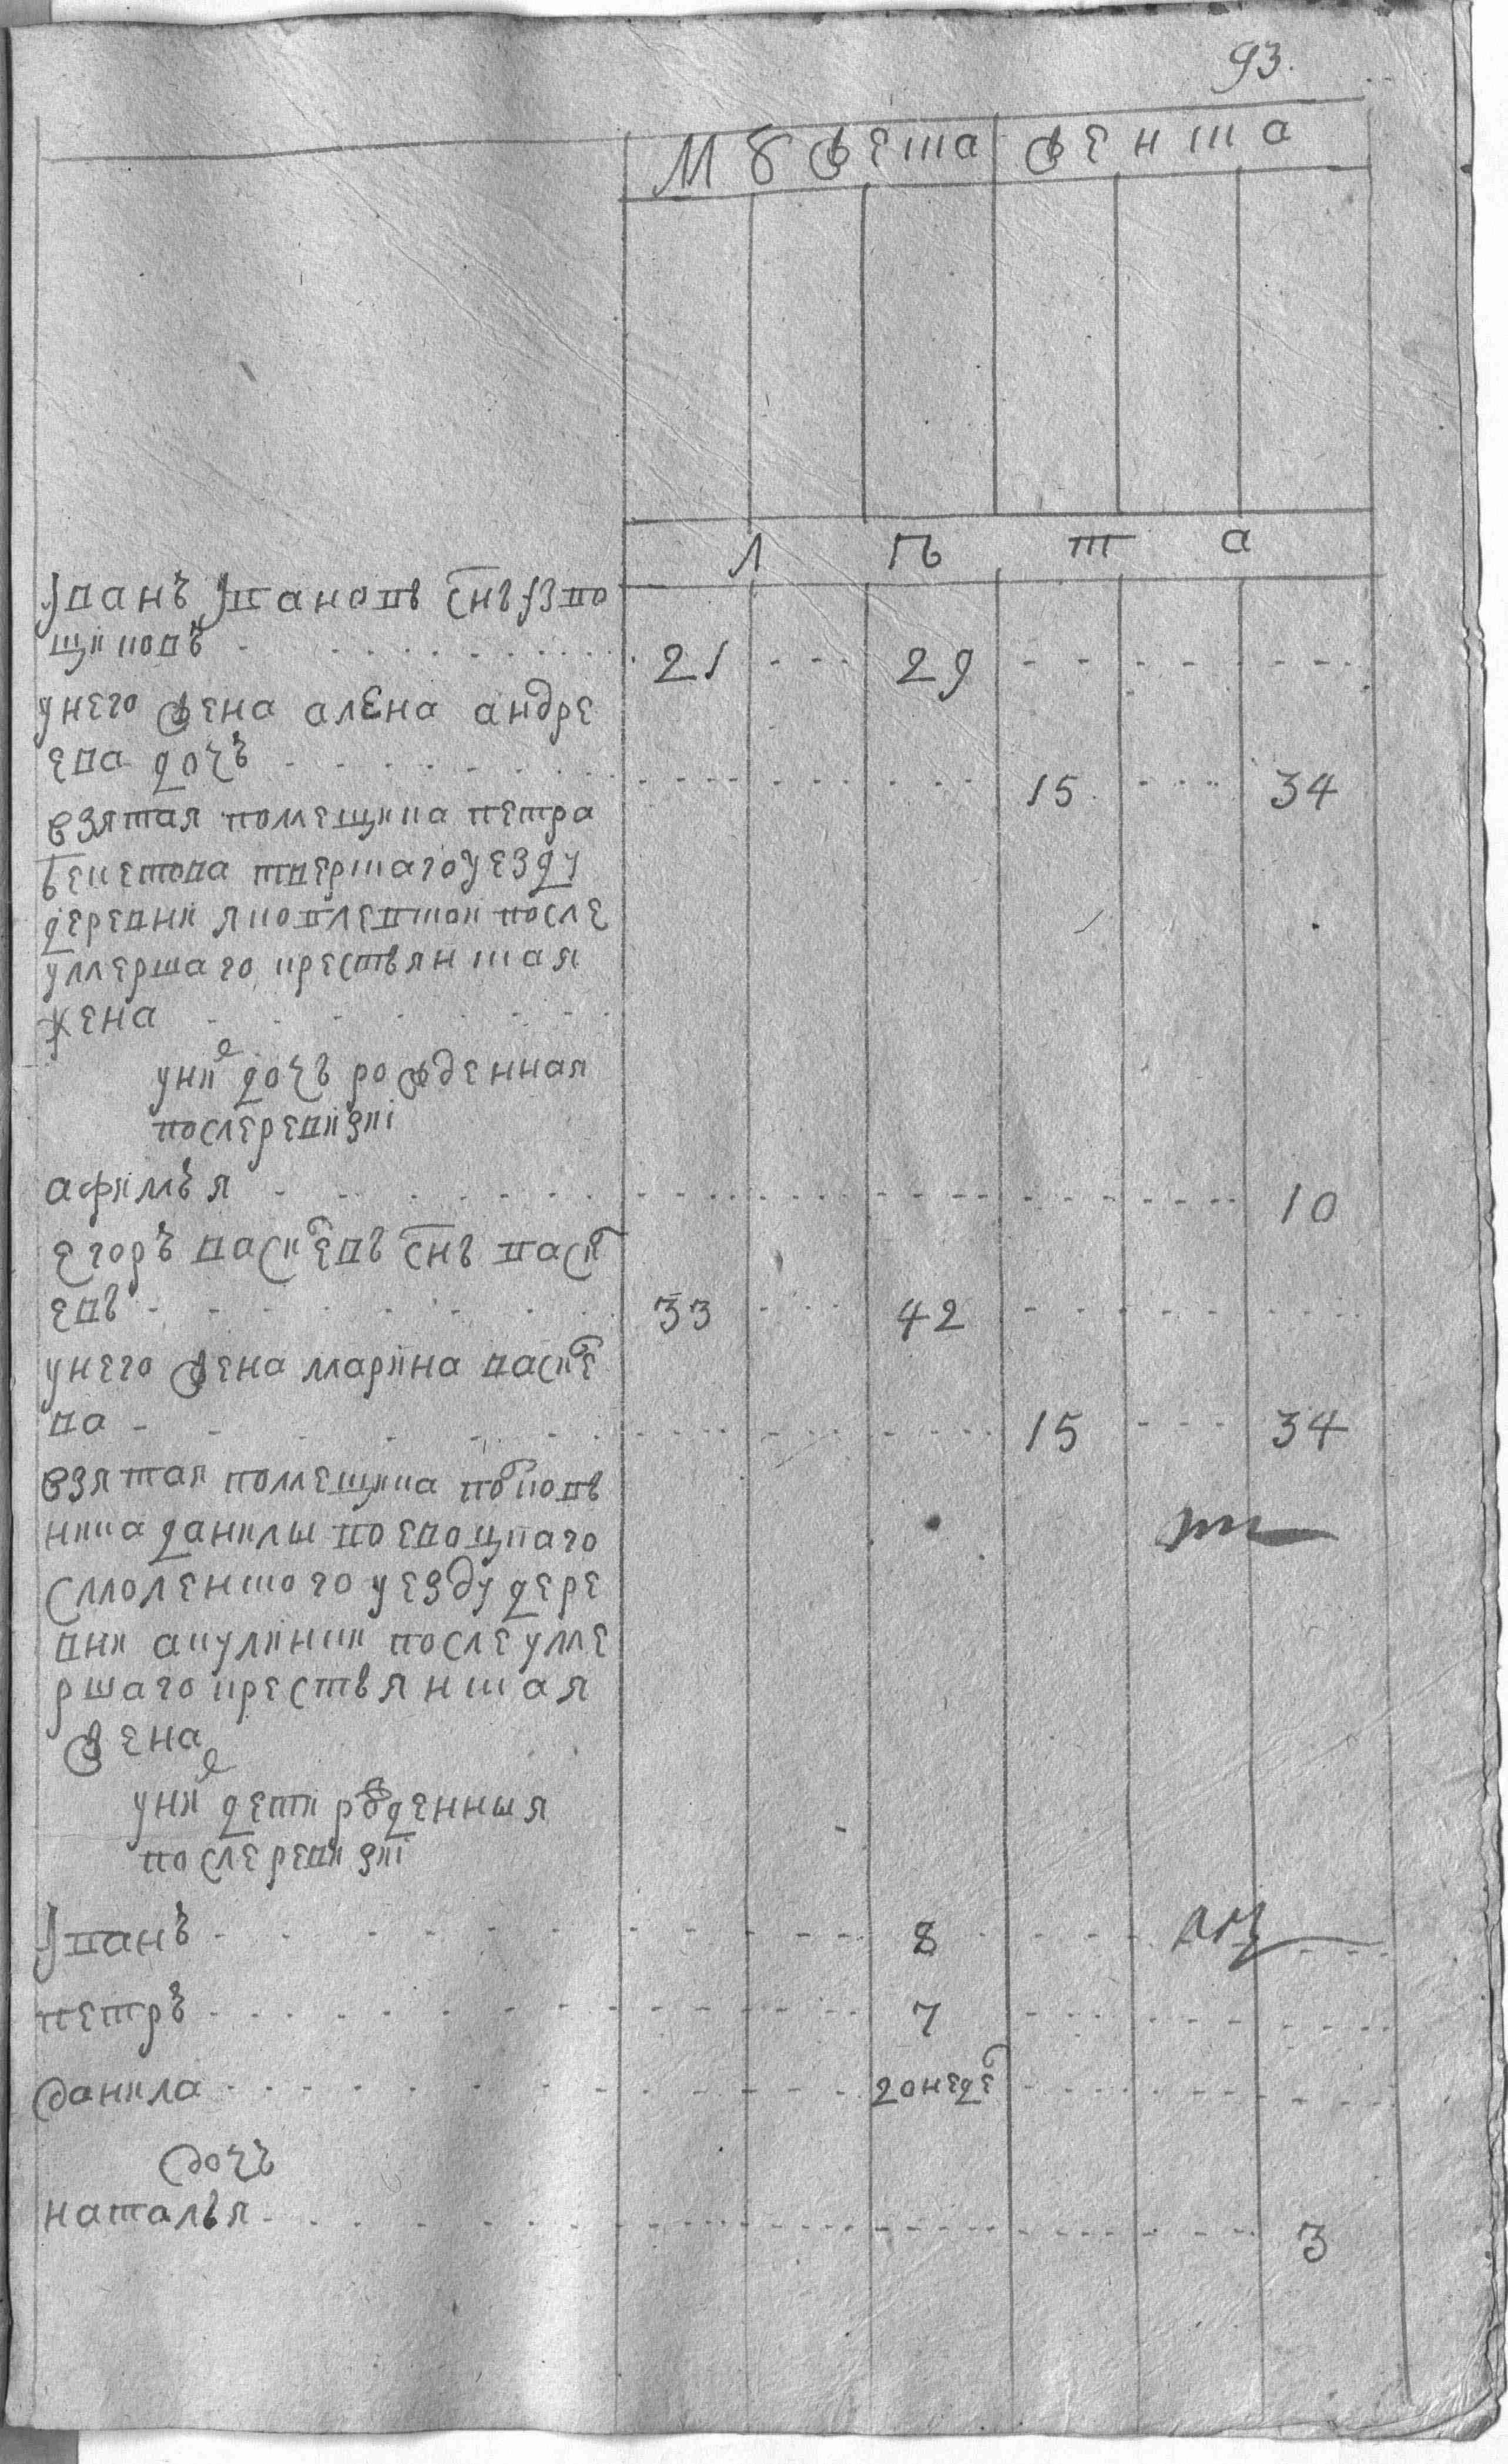 93.
мужеска женска
л ѣ т а
Иванъ Ивановъ снъ Изво
щиковъ 21 29
унего жена алена андре
ева дочъ 15 34
взятая помещика петра
тверскаго уезду
деревни яковлевской после
умершаго крествянская
жена
уних дочъ рожденная
послеревизиі
афимья 10
Егоръ васильевъ снъ васил
евъ 33 42
унего жена марина василе
ва 15 34
взятая помещика полковь
ника данилы воевоцкаго
смоленского уезду дере
вни акулинки после уме
ршаго крествянская
жена
уних дети рожденныя
послеревизиі
Иванъ 8
петръ 7
данила 20недел
дочъ
наталья 3